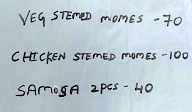 VEG STEMED MOMES - 70
CHICKEN STEMED MOMES - 100
SAMOSA 2PCS - 40